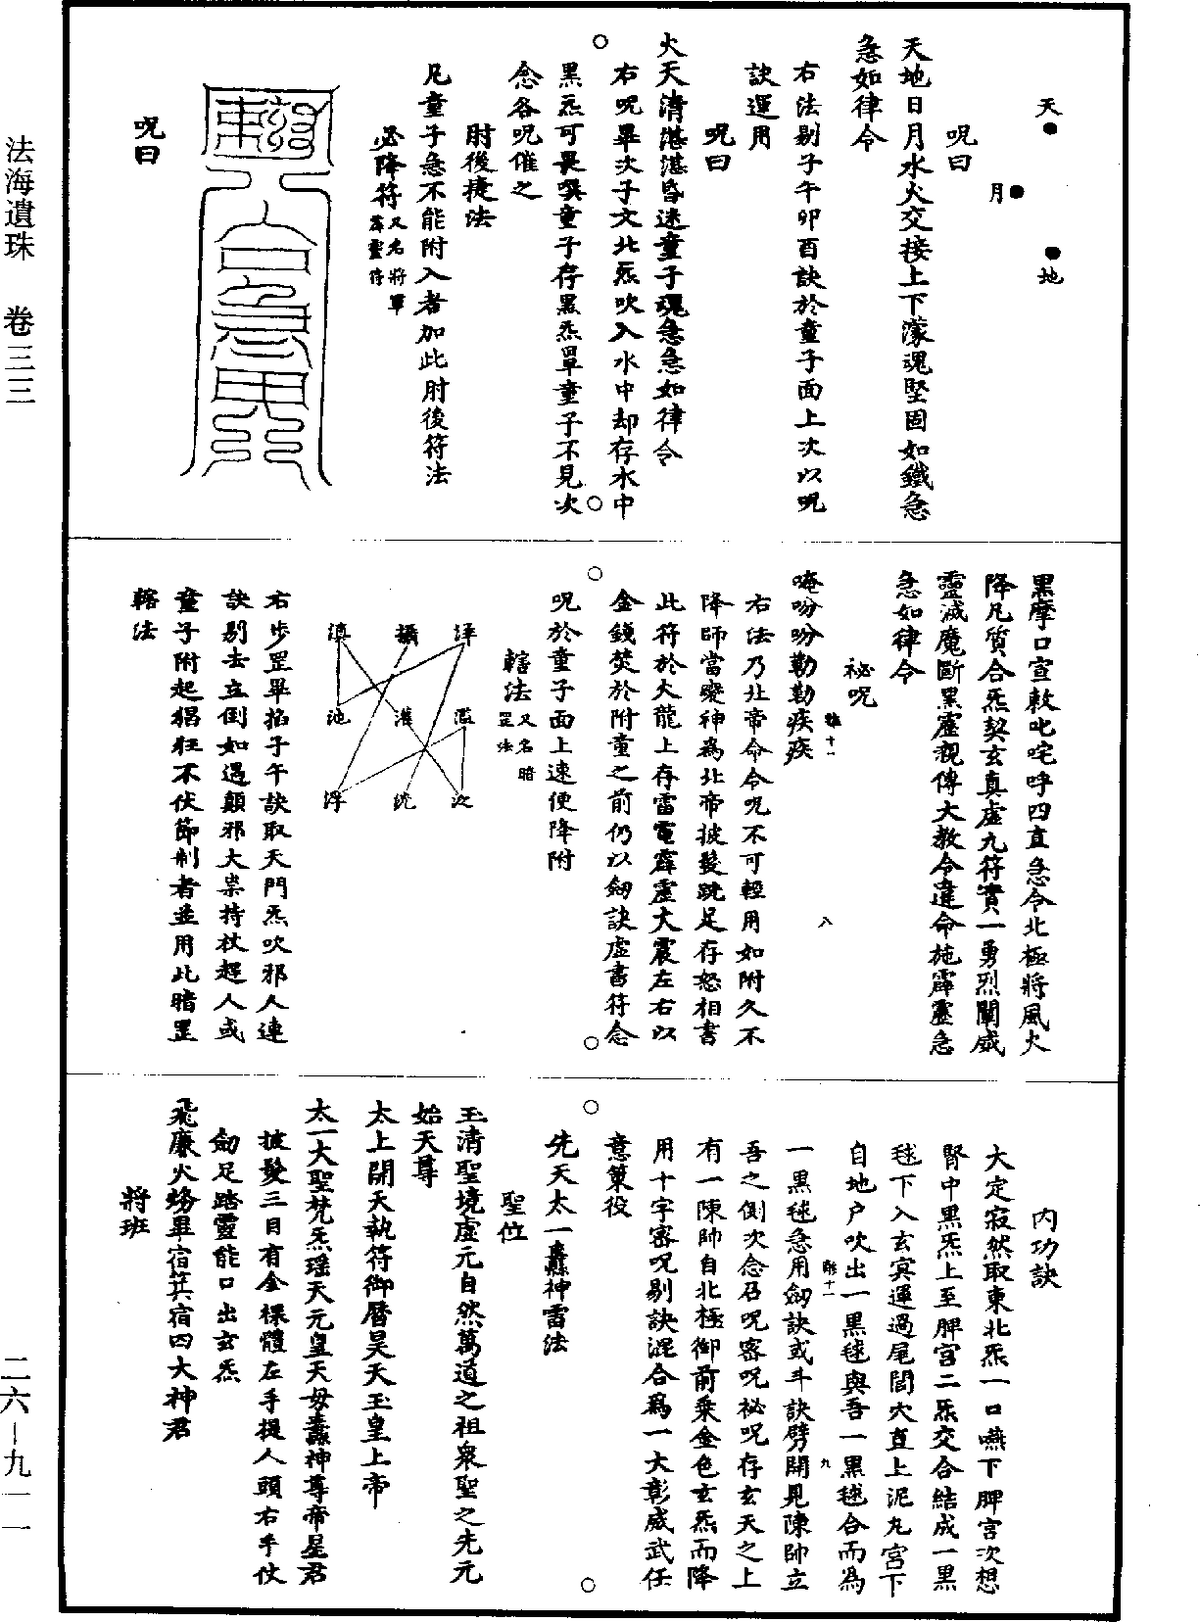 天
月
地
呪曰
天地日月水火交接上下濛魂堅固如鐵急
急如律令
右法剔子午卯酉訣於童子面上次以呪
訣運用
呪曰
火天清湛湛昏迷童子魂急急如律令
右呪畢次子文北炁吹入水中却存水中
黑炁可畏噀童子存黑炁罩童子不見次
念各呪催之
肘後捷法
凡童子急不能附入者加此肘後符法
必降符又名將軍
霹靈符
呪曰
黑摩口宣敕叱咤呼四直急令北極將風火
降凡質合炁契玄真虛九符實一勇烈闡威
靈滅魔斷黑虛親傳大教令違命施霹靂急
急如律令
祕呪
唵吩吩勅勅疾疾
右法乃北帝命令呪不可輕用如附久不
降師當變神為北帝披髮跣足存怒相書
此符於火龍上存雷電霹靂大震左右以
金錢焚於附童之前仍以劍訣虛書符念
呪於童子面上速便降附
轄法又名暗
罡法
澤
攝
滇
濫
漢
池
次
沈
浮
右步罡畢掐子午訣取天門炁吹邪人連
訣剔去立倒如遇顛邪大祟持杖趕人或
童子附起猖狂不伏節制者並用此暗罡
轄法
八
內功訣
大定寂然取東北炁一口嚥下脾宮次想
腎中黑炁上至脾宮二炁交合結成一黑
毬下入玄冥運過尾閭穴直上泥丸宮下
自地戶吹出一黑毬與吾一黑毬合而為
一黑毬急用劍訣或斗訣劈開見陳帥立
吾之側次念召呪密呪祕呪存玄天之上
有一陳帥自北極御前乘金色玄炁而降
用十字密呪剔訣混合為一大彰威武任
意策役
九
先天太一轟神雷法
聖位
玉清聖境虛元自然萬道之祖眾聖之先元
始天尊
太上開天執符御曆昊天玉皇上帝
太一大聖梵炁瑶天元皇天母轟神尊帝星君
披髮三目有金裸體左手提人頭右手仗
劍足踏靈能口出玄炁
飛廉火鴉畢宿箕宿四大神君
將班
法海遺珠 卷三三
二六—九一一